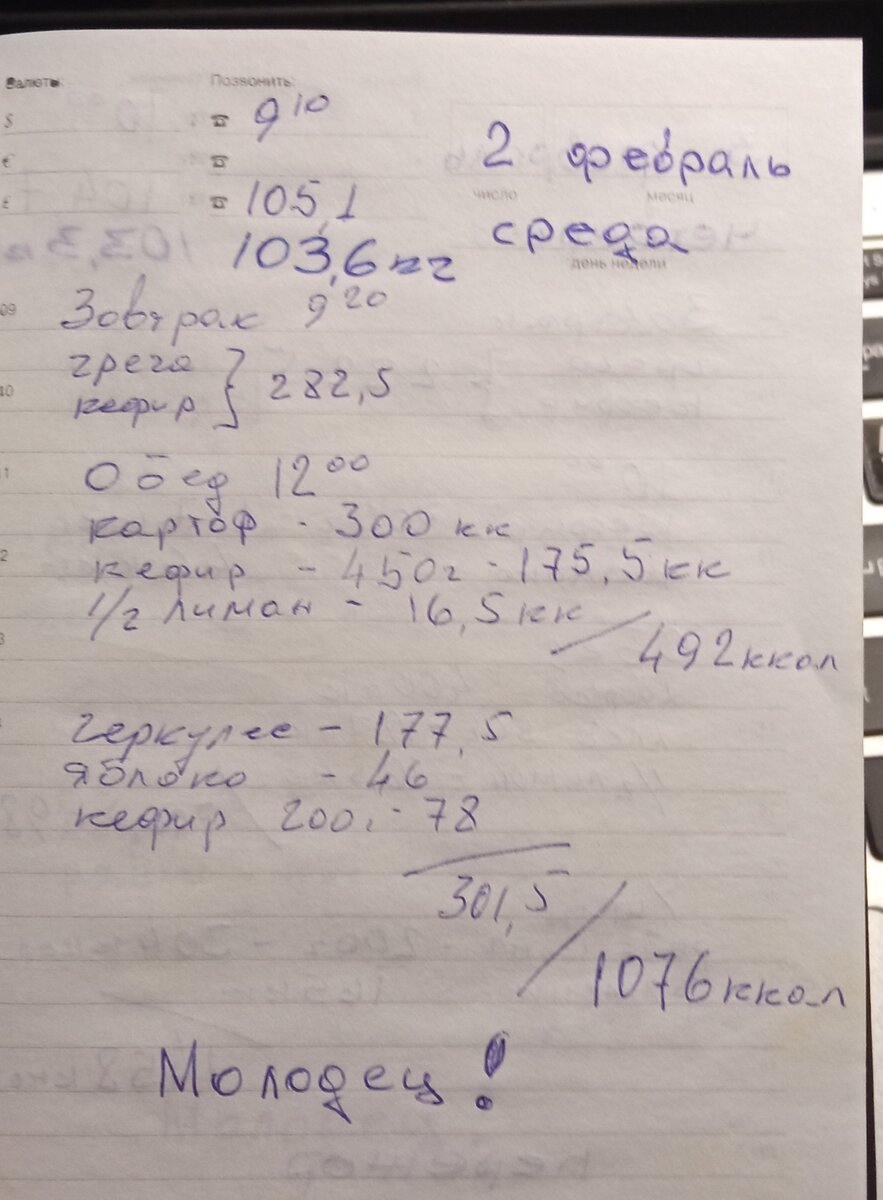 Валюты: Позвонить:
$ ☎ 9 10
€ ☎
£ ☎ 105,1
2 февраль
число месяц
среда
день недели
103,6 кг
09 Завтрак 9 20
греча
10 кефир } 282,5
Обед 12 00
картоф - 300 кк
кефир - 450г - 175,5 кк
1/2 лиман - 16,5 кк
492 ккал
геркулес - 177,5
яблоко - 46
кефир 200г - 78
301,5
1076 ккал
Молодец!